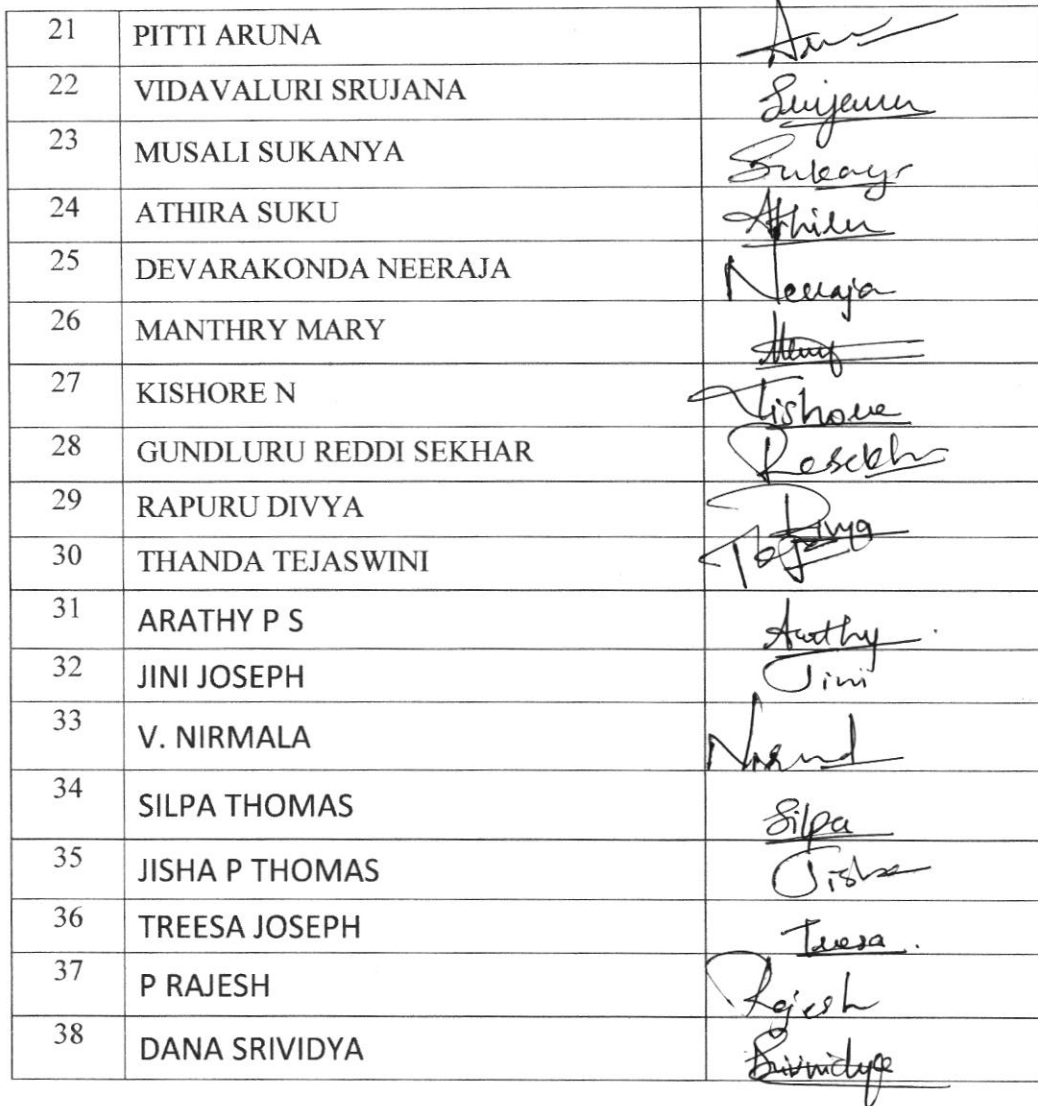 21 PITTI ARUNA
22 VIDAVALURI SRUJANA Srujana
23 MUSALI SUKANYA
24 ATHIRA SUKU
25 DEVARAKONDA NEERAJA Neeraja
26 MANTHRY MARY Mary
27 KISHORE N Kishore
28 GUNDLURU REDDI SEKHAR
29 RAPURU DIVYA Divya
30 THANDA TEJASWINI
31 ARATHY P S Arathy
32 JINI JOSEPH Jini
33 V. NIRMALA
34 SILPA THOMAS Silpa
35 JISHA P THOMAS Jisha
36 TREESA JOSEPH Treesa
37 P RAJESH Rajesh
38 DANA SRIVIDYA Srividya